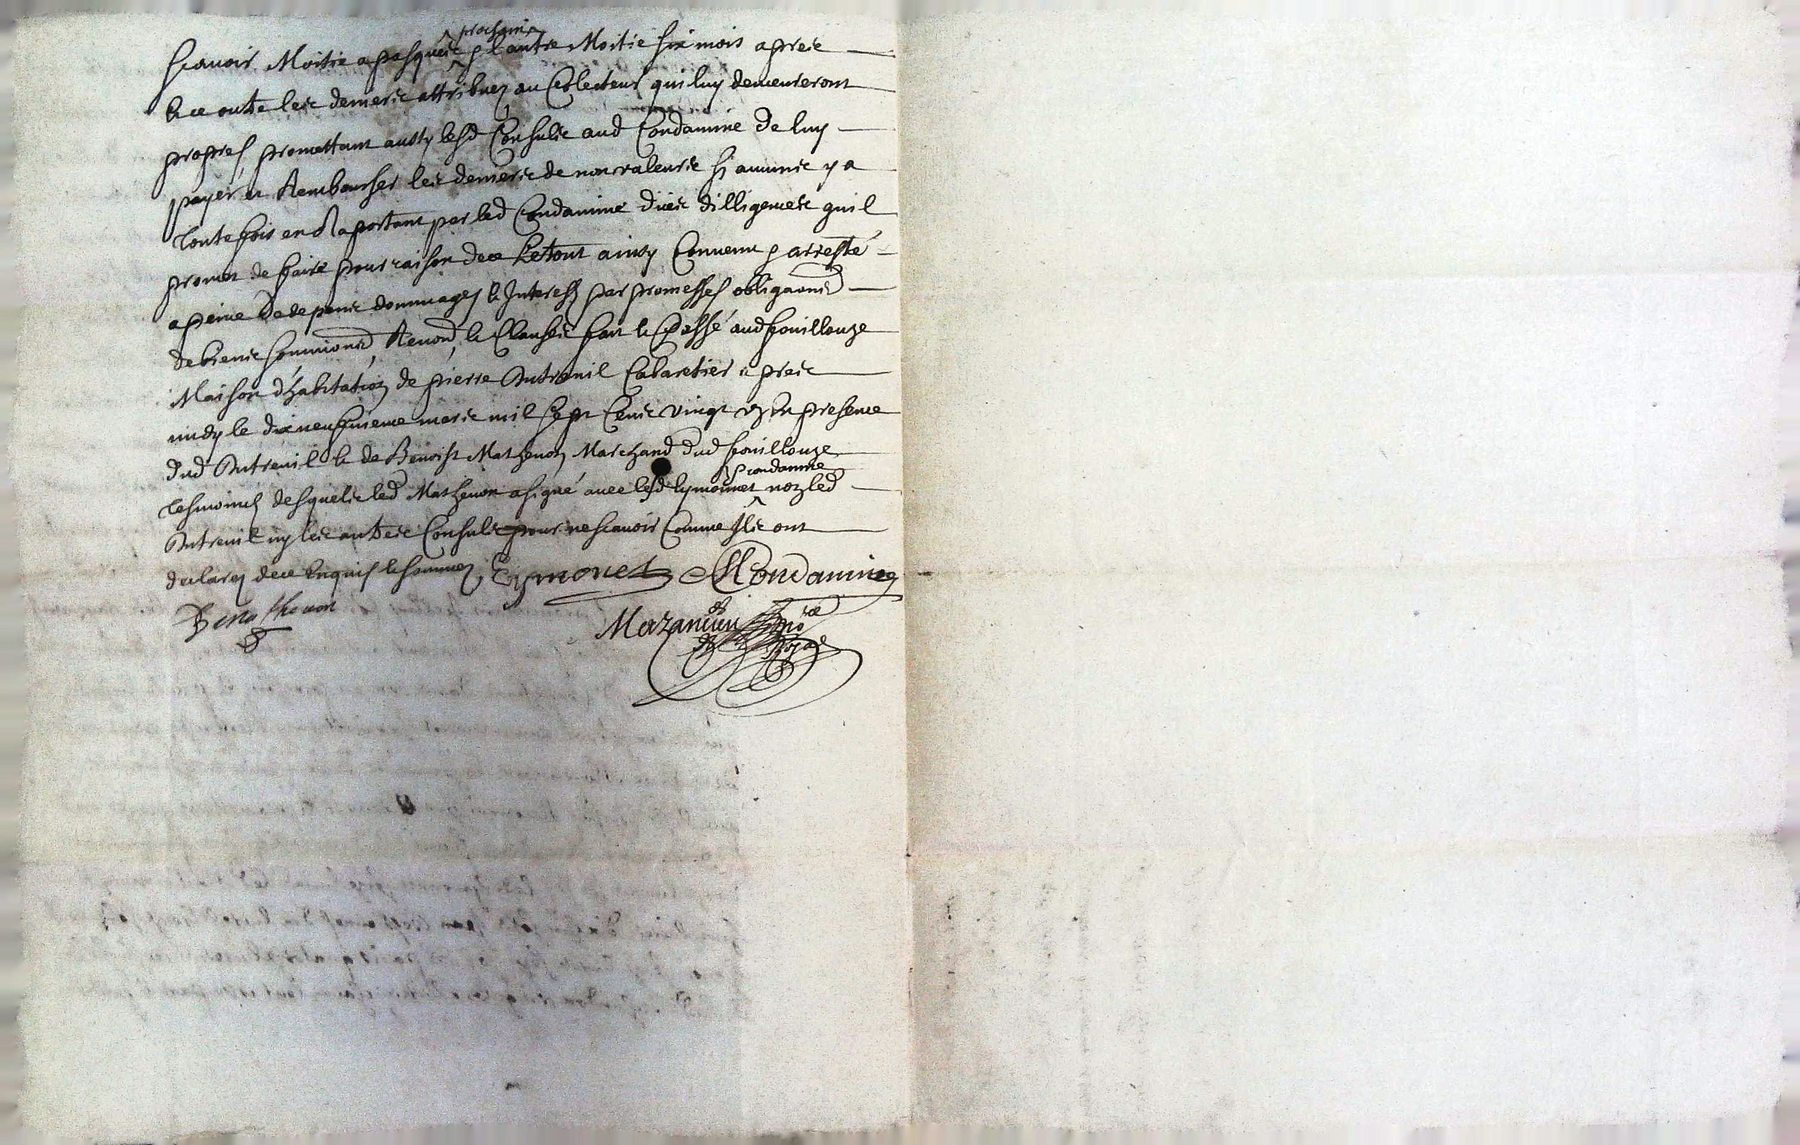 scavoir Moitié a pasques prochain & l'autre Moitié six mois apres
& ce outre les deniers attribuez au Collecteur qui luy demeureront
propres, promettant aussy lesd Consuls aud Condamine de luy
payer et Rembourser les deniers de non valeurs si aucuns y a
toutefois en Raportant par led Condamine dues dilligences quil
promet de faire pour raison de ce Le tout ainsy Convenu & arresté
a peine de depens dommages & Interests par promesses obligaons
de biens soumions, Renond, & Clauses fait & Passé aud fouillouze
Maison d'habitation de pierre Dutreuil Cabaretier apres
midy le dix neufvieme mars mil sept Cens vingt En presence
dud Dutreuil & de Benoist Mathevon Marchand dud fouillouze
tesmoins desquels led Mathevon a signé avec lesd Lymonet & Condamine non led
Dutreuil ny les autres Consuls pour ne scavoir Comme Ils ont
declarez de ce Enquis & sommez Lymonet Condamine
B Mathevon
Mazancieu